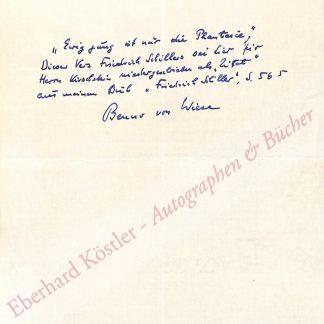 „Ewig jung ist nur die Phantasie,"
Dieser Vers Friedrich Schillers sei hier für
Herrn Kirchstein niedergeschrieben als „Zitat"
aus meinem Buch „Friedrich Schiller", S. 565
Benno von Wiese
Eberhard Köstler - Autographen & Bücher